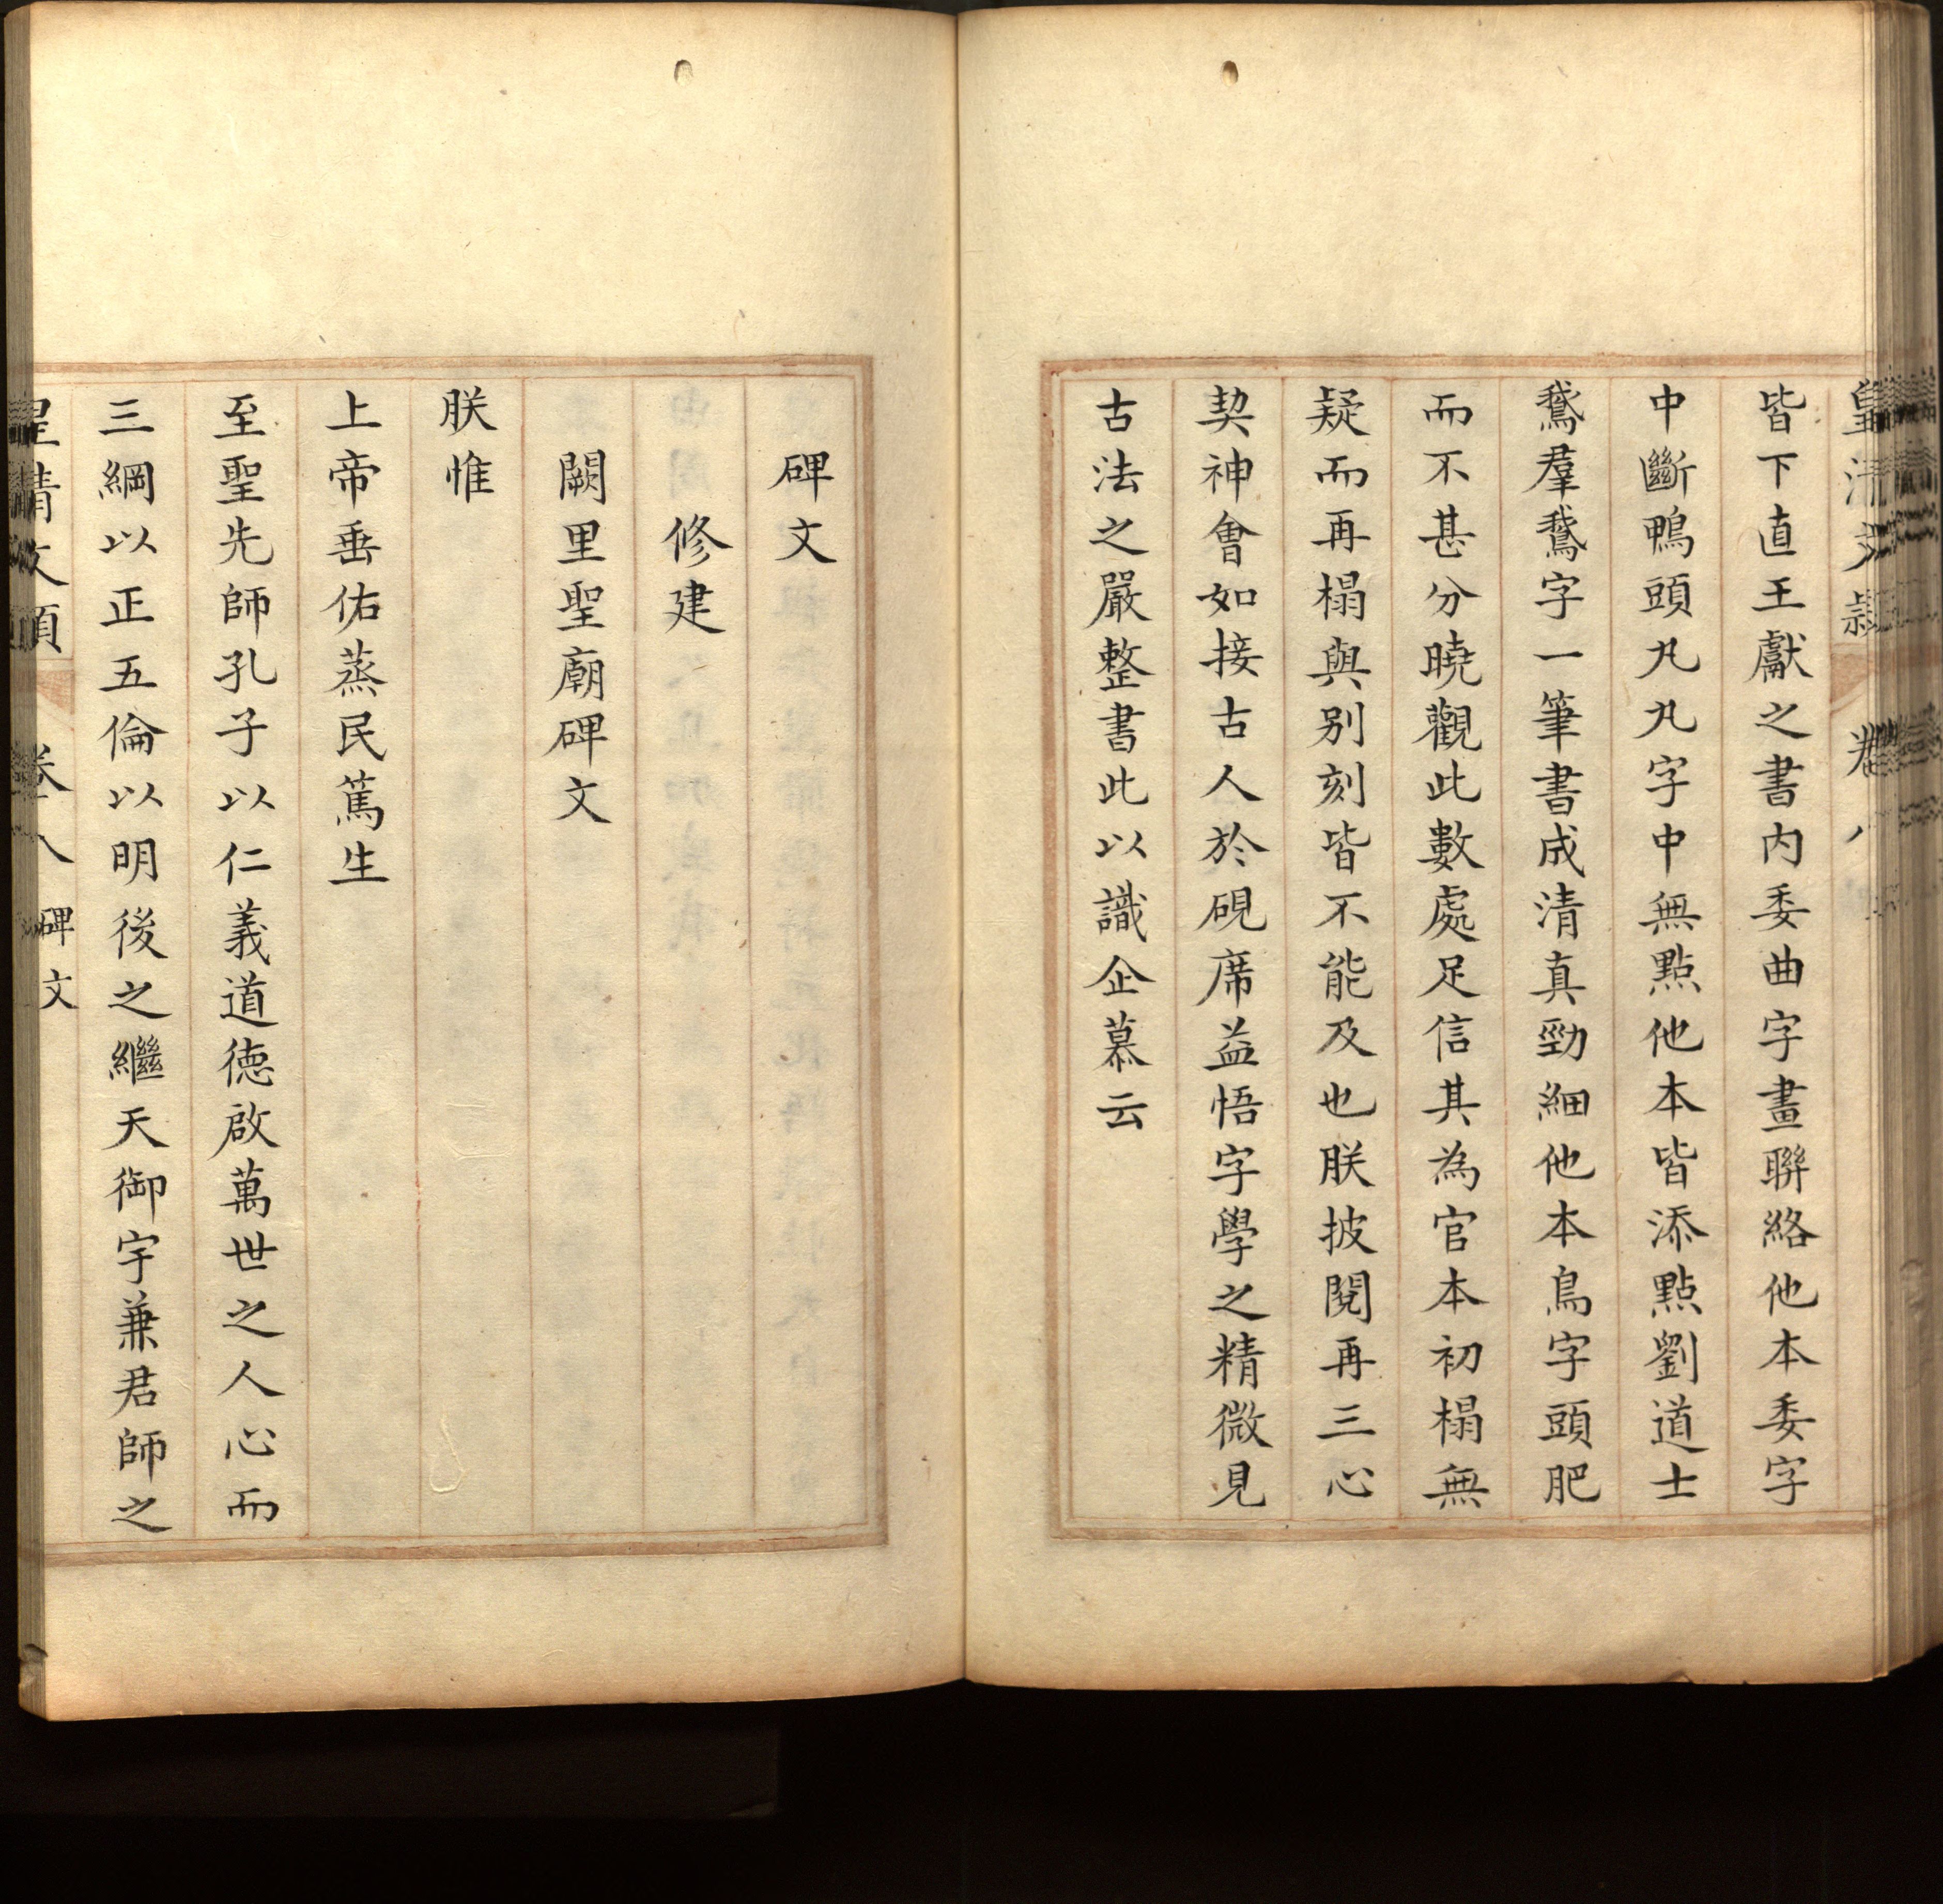 皇清文穎 卷八
皆下直王獻之書内委曲字畫聯絡他本委字
中斷鴨頭丸丸字中無點他本皆添點劉道士
鵞羣鵞字一筆書成清真勁細他本鳥字頭肥
而不甚分曉觀此數處足信其為官本初榻無
疑而再榻與别刻皆不能及也朕披閱再三心
契神會如接古人於硯席益悟字學之精微見
古法之嚴整書此以識企慕云
碑文
修建
闕里聖廟碑文
朕惟
上帝垂佑蒸民篤生
至聖先師孔子以仁義道德啟萬世之人心而
三綱以正五倫以明後之繼天御宇兼君師之
皇清文穎 卷八 碑文